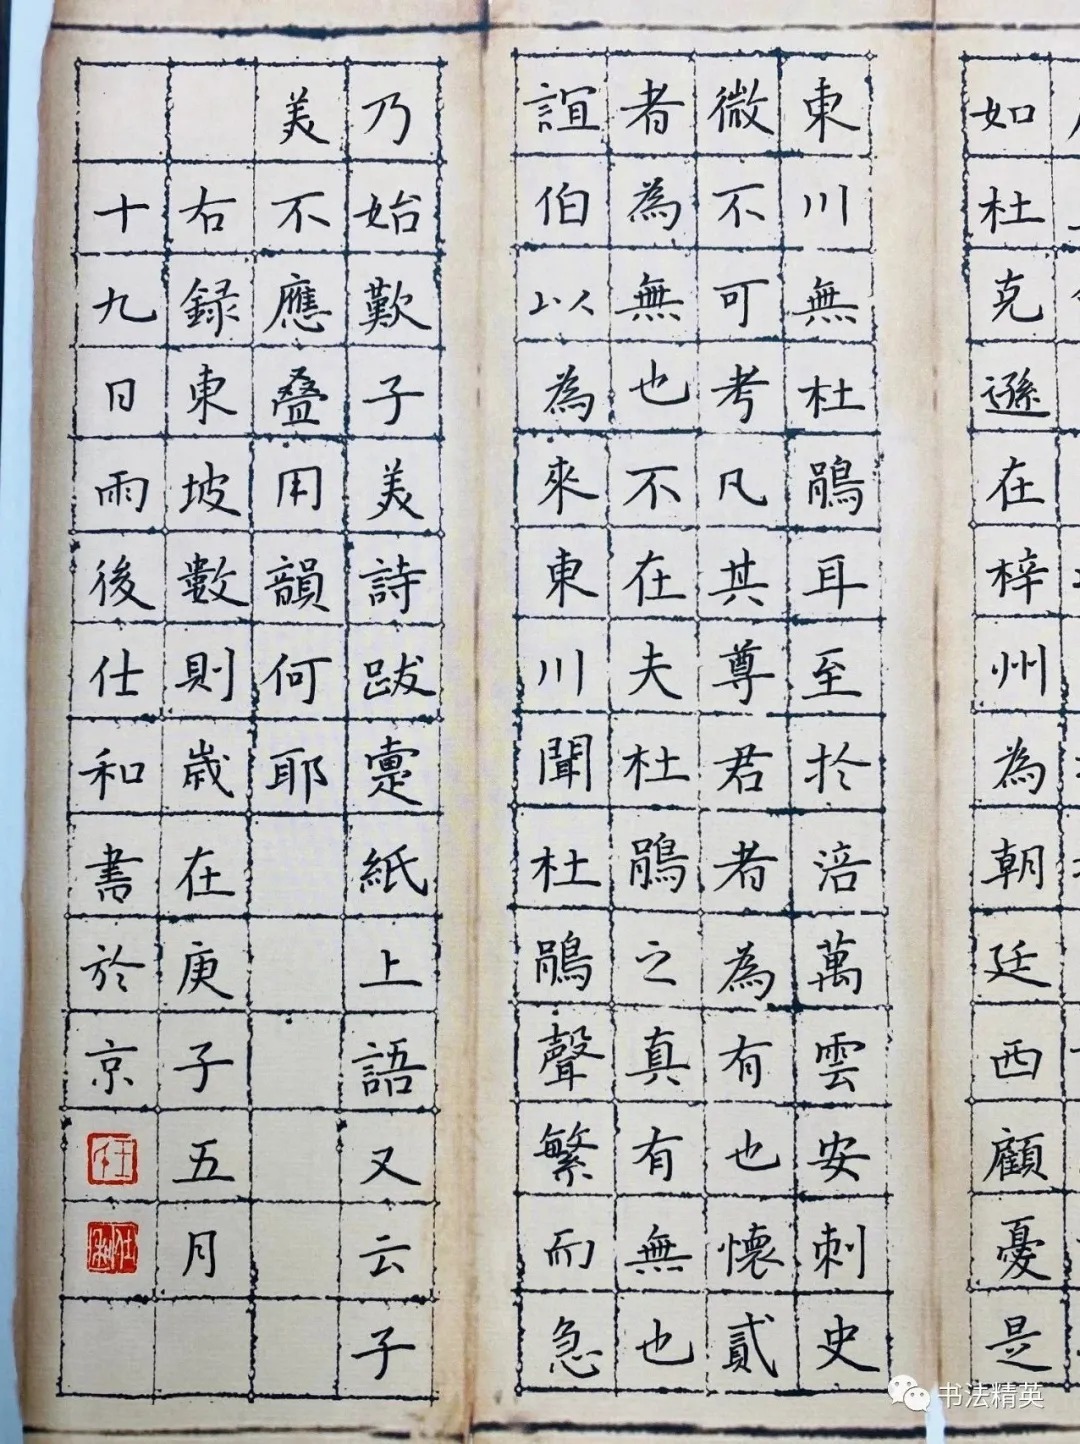 如杜克遜在梓州為朝廷西顧憂是
東川無杜鵑耳至於涪萬雲安刺史
微不可考凡其尊君者為有也懷貳
者為無也不在夫杜鵑之真有無也
誼伯以為來東川聞杜鵑聲繁而急
乃始歎子美詩跋疐紙上語又云子
美不應叠用韻何耶
右録東坡數則歲在庚子五月
十九日雨後仕和書於京
书法精英